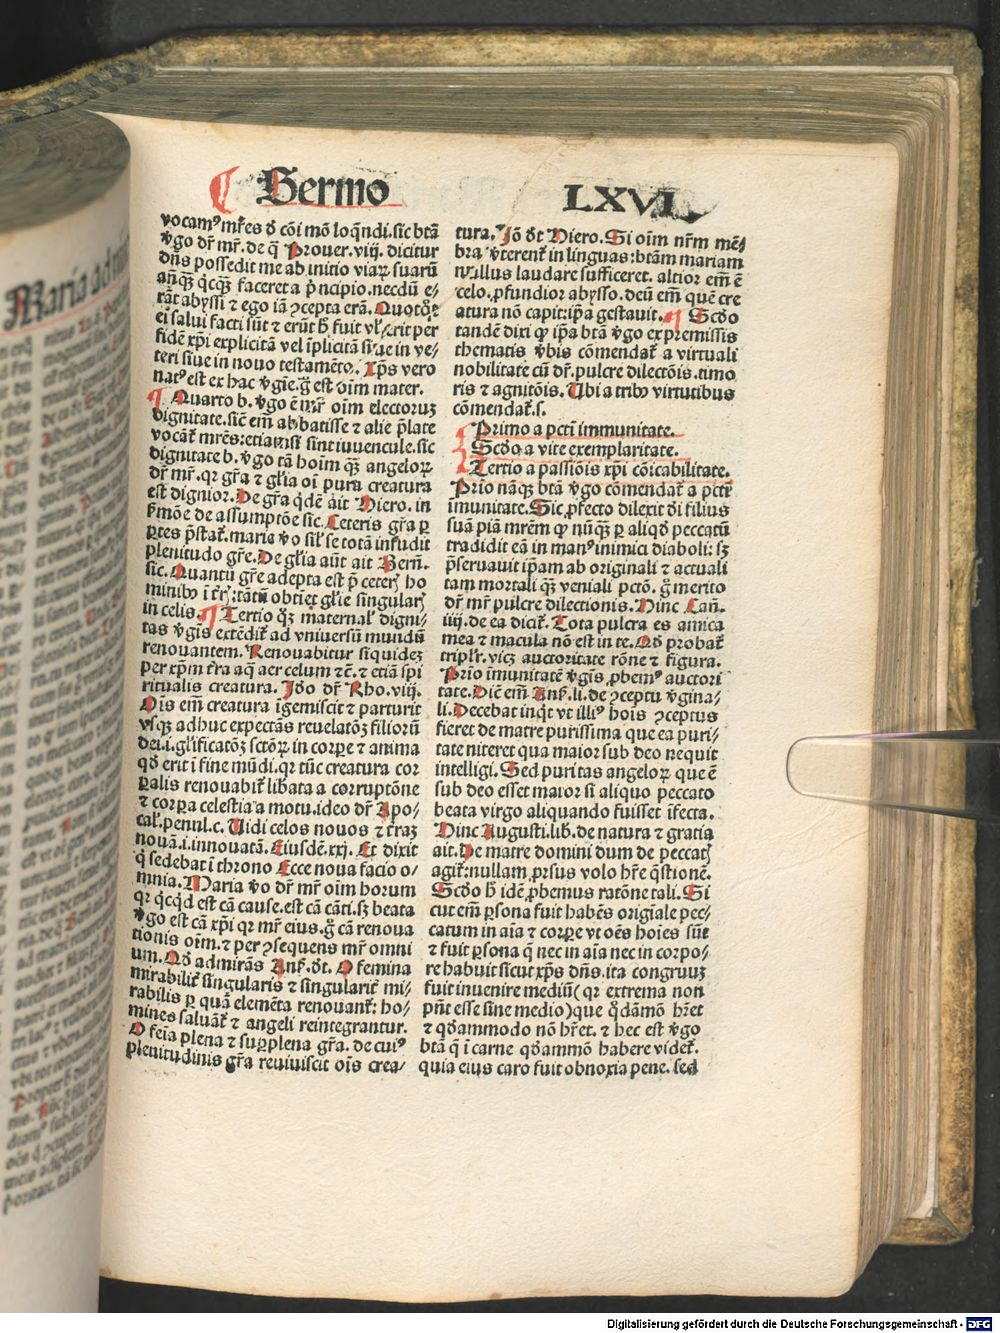 Sermo LXVI
vocamꝰ mr̃es ð cõi mõ loq̃ndi. sic btã
v̾go dr̃ mr̃. de q̃ Prouer. viij. dicitur
dñs possedit me ab initio viaꝝ suarũ
añq̃ꝫ qͥcq̃ꝫ faceret a pͥncipio. necdũ e⸗
rãt abyssi ⁊ ego iã ꝯcepta erã. Quotqͦt
ei salui facti sũt ⁊ erũt b̃ fuit vl̛ erit per
fidẽ xp̃i explicitã vel ĩplicitã siue in ve⸗
teri siue in nouo testamẽto. Xp̃s vero
natꝰ est ex hac v̾gie. g̊ est oĩm mater.
¶ Quarto b. v̾go ẽ mr̃ oĩm electoruꝫ
dignitate. sic̃ em̃ abbatisse ⁊ alie p̃late
vocãt mr̃es: etiamsi sint iuuencule. sic
dignitate b. v̾go tã hoĩm q̃ꝫ angeloꝝ
dr̃ mr̃. qꝛ gr̃a ⁊ gl̃ia oĩ pura creatura
est dignior. De gr̃a qͥdẽ ait Hiero. in
s̾mõe de assumptõe sic. Ceteris gr̃a ꝑ
ꝑtes p̃stat̃. maria v̾o sil̛ se totã infudit
plenitudo gr̃e. De gl̃ia aũt ait Bern̄.
sic. Quantũ gr̃e adepta est p̃ ceterꝭ ho
minibꝰ ĩ tr̃ꝭ: tãtũ obtiet gl̃ie singularꝭ
in celis. ¶ Tertio qͣꝫ maternal̛ digni⸗
tas v̾gĩs extẽdit̃ ad vniuersũ mundũ
renouantem. Renouabitur siquideꝫ
per xp̃m t̾ra aq̃ aer celum ⁊c̃. ⁊ etiã spi
ritualis creatura. Iđo dr̃ Rho. viij.
Oĩs em̃ creatura ĩgemiscit ⁊ parturit
vsqꝫ adhuc expectãs reuelatõꝫ filiorũ
dei. i. glificatõꝫ sctõꝝ in corꝑe ⁊ anima
qđ erit ĩ fine mũdi. qꝛ tũc creatura cor
ꝑalis renouabit̃ lib̾ata a corruptõne
⁊ corꝑa celestia a motu. ideo dr̃ Apo⸗
cal̛. penul. c. Uidi celos nouos ⁊ t̾raꝫ
nouã. i. innouatã. Eiusdẽ. xxj. Et dixit
qͥ sedebat ĩ throno Ecce noua facio o⸗
mnia. Maria v̾o dr̃ mr̃ oĩm horum
qꝛ qͥcqͥd est cã cause. est cã cãti. sꝫ beata
v̾go est cã xp̃i qꝛ mr̃ eius. g̊ cã renoua
tionis oĩm. ⁊ per ꝯsequens mr̃ omni
um. Qđ admirãs Anß. ðt. O femina
mirabilit̾ singularis ⁊ singularit̾ mi⸗
rabilis ꝑ quã elemẽta renouant̃: ho⸗
mines saluãt̃ ⁊ angeli reintegrantur.
O feĩa plena ⁊ suꝑplena gr̃a. de cuiꝰ
plenitudinis gr̃a reuiuiscit oĩs crea⸗
tura. Iõ ðt Hiero. Si oĩm nr̃m mẽ⸗
bra v̾terent̃ in linguas: btãm mariam
nullus laudare sufficeret. altior em̃ ẽ
celo. ꝓfundior abysso. deũ em̃ quẽ cre
atura nõ capit: ip̃a gestauit. ¶ Scđo
tandẽ diri qͥ ip̃a btã v̾go ex premissis
thematis v̾bis cõmendat̃ a virtuali
nobilitate cũ dr̃. pulcre dilectõis. timo
ris ⁊ agnitõis. Ubi a tribꝰ virtutibus
cõmendat̃. s.
Primo a pcti immunitate.
Scđo a vite exemplaritate.
Tertio a passiõis xp̃i cõicabilitate.
Prĩo nãqꝫ btã v̾go cõmendat̃ a pcti
ĩmunitate. Sic ꝓfecto dilexit đi filius
suã piã mrẽm qͥ nũqꝫ ꝑ aliqđ peccatũ
tradidit eã in manꝰ inimici diaboli: sꝫ
p̃seruauit ip̃am ab originali ⁊ actuali
tam mortali qꝫ veniali pctõ. g̊ merito
dr̃ mr̃ pulcre dilectionis. Hinc Cañ.
iiij. de ea dicit̃. Tota pulcra es amica
mea ⁊ macula nõ est in te. Qđ probat̃
triplr̃. vicꝫ auctoritate rõne ⁊ figura.
Prĩo ĩmunitatẽ v̾gĩs ꝓbemꝰ auctori
tate. Dic̃ em̃ Anß. li. de ꝯceptu v̾gina⸗
li. Decebat inqͥt vt illiꝰ hoĩs ꝯceptus
fieret de matre purissima que ea puri⸗
tate niteret qua maior sub deo nequit
intelligi. Sed puritas angeloꝝ que ẽ
sub deo esset maior si aliquo peccato
beata virgo aliquando fuisset ĩfecta.
Hinc Augusti. lib. de natura ⁊ gratia
ait. De matre domini dum de peccatꝭ
agit̃: nullam ꝓrsus volo hr̃e q̃stionẽ.
Scđo b̃ idẽ ꝓbemus ratõne tali. Si
cut em̃ ꝑsona fuit habẽs origĩale pec⸗
catum in aĩa ⁊ corꝑe vt oẽs hoĩes sũt
⁊ fuit ꝑsona q̃ nec in aĩa nec in corpo⸗
re habuit sicut xp̃s dñs. ita congruuꝫ
fuit inuenire mediũ (qꝛ extrema non
pñt esse sine medio) que qͦđamõ hr̃et
⁊ qđammodo nõ hr̃et. ⁊ hec est v̾go
btã q̃ ĩ carne qđammõ habere videt̃.
quia eius caro fuit obnoxia pene. sed
Digitalisierung gefördert durch die Deutsche Forschungsgemeinschaft - DFG